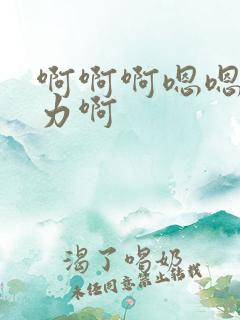 啊啊啊嗯嗯
力啊
渴了喝奶
未经同意禁止转载